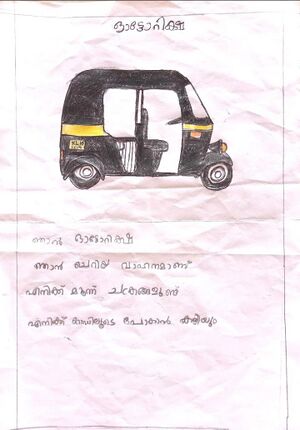 ഓട്ടോറിക്ഷ
ഞാൻ ഓട്ടോറിക്ഷ
ഞാൻ ചെറിയ വാഹനമാണ്
എനിക്ക് മൂന്ന് ചക്രങ്ങളുണ്ട്
എനിക്ക് പോകാൻ കഴിയും